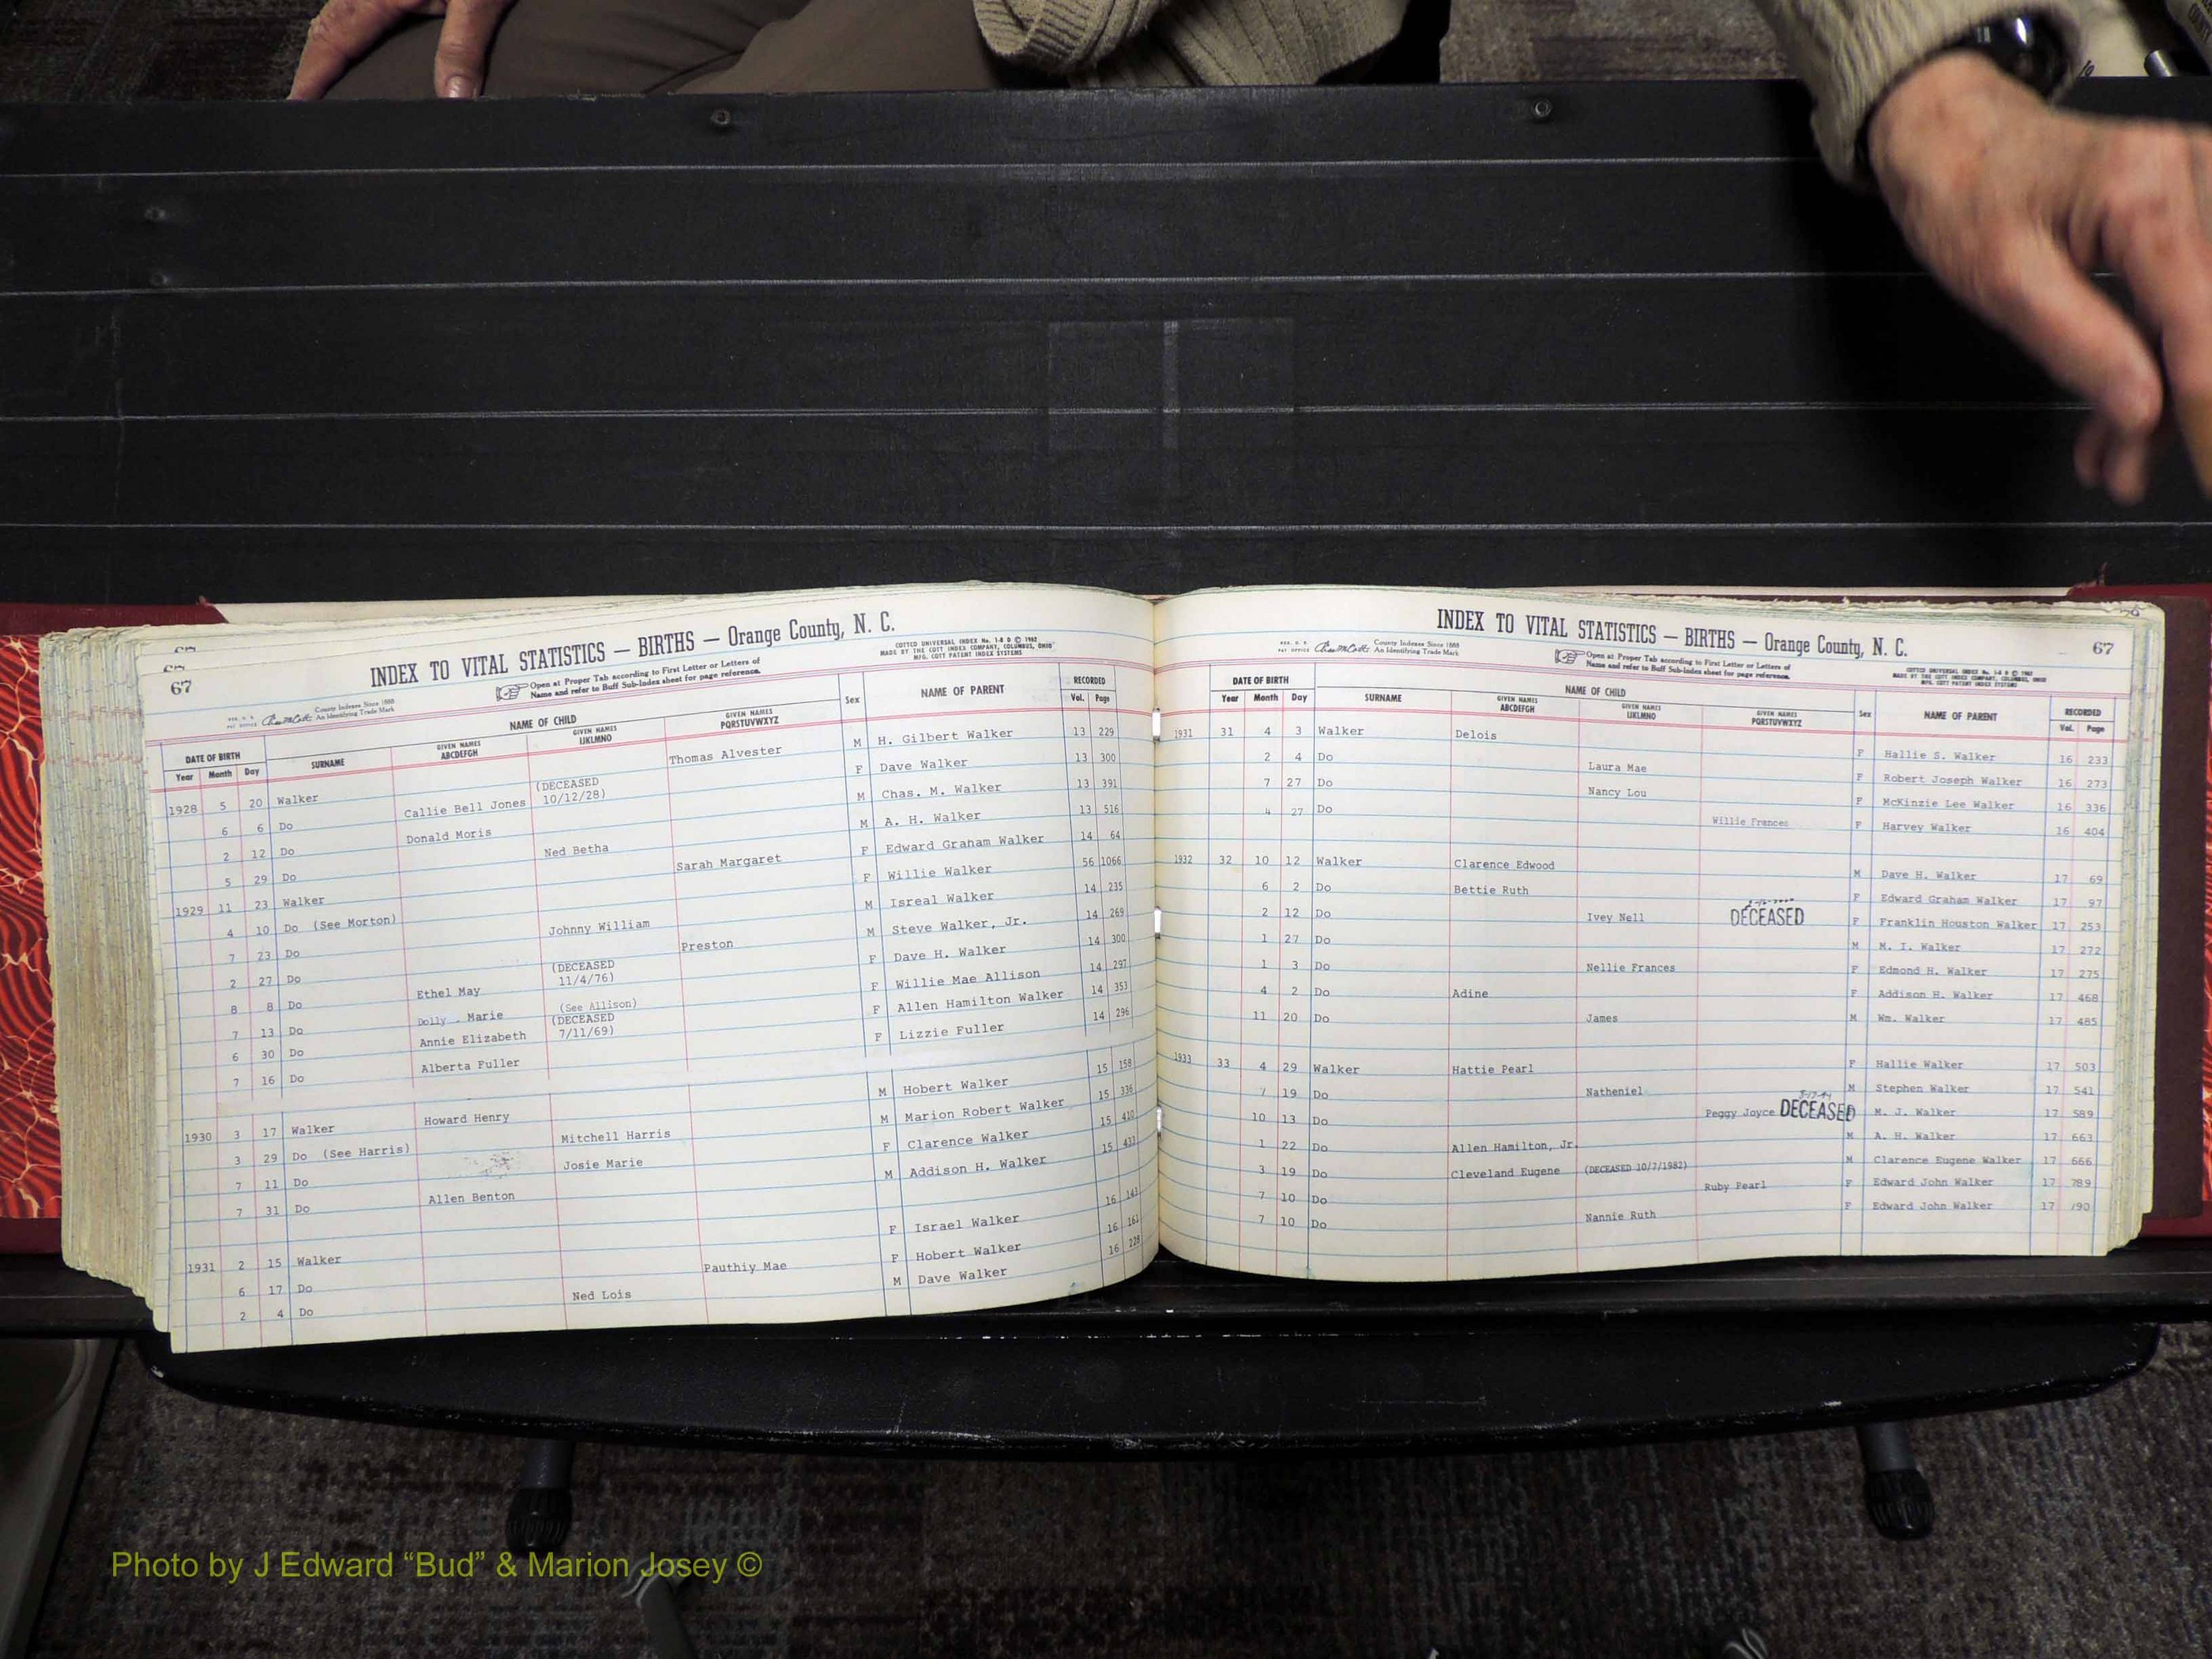 67
INDEX TO VITAL STATISTICS — BIRTHS — Orange County, N. C.
REG. U. S. PAT. OFFICE County Indexes Since 1888 An Identifying Trade Mark
Open at Proper Tab according to First Letter or Letters of
Name and refer to Buff Sub-Index sheet for page reference.
COTTCO UNIVERSAL INDEX No. 1-8 D © 1962
MADE BY THE COTT INDEX COMPANY, COLUMBUS, OHIO
MFG. COTT PATENT INDEX SYSTEMS
DATE OF BIRTH NAME OF CHILD Sex NAME OF PARENT RECORDED
Year Month Day SURNAME GIVEN NAMES ABCDEFGH GIVEN NAMES IJKLMNO GIVEN NAMES PQRSTUVWXYZ Vol. Page
1928 5 20 Walker Thomas Alvester M H. Gilbert Walker 13 229
6 6 Do Callie Bell Jones (DECEASED 10/12/28) F Dave Walker 13 300
2 12 Do Donald Moris M Chas. M. Walker 13 391
5 29 Do Ned Betha M A. H. Walker 13 516
1929 11 23 Walker Sarah Margaret F Edward Graham Walker 14 64
4 10 Do (See Morton) F Willie Walker 56 1066
7 23 Do Johnny William M Isreal Walker 14 235
2 27 Do Preston M Steve Walker, Jr. 14 269
8 8 Do Ethel May (DECEASED 11/4/76) F Dave H. Walker 14 300
7 13 Do Dolly Marie (See Allison) F Willie Mae Allison 14 297
6 30 Do Annie Elizabeth (DECEASED 7/11/69) F Allen Hamilton Walker 14 353
7 16 Do Alberta Fuller F Lizzie Fuller 14 296
1930 3 17 Walker Howard Henry M Hobert Walker 15 158
3 29 Do (See Harris) Mitchell Harris M Marion Robert Walker 15 336
7 11 Do Josie Marie F Clarence Walker 15 410
7 31 Do Allen Benton M Addison H. Walker 15 433
1931 2 15 Walker F Israel Walker 16 143
6 17 Do Pauthiy Mae F Hobert Walker 16 161
2 4 Do Ned Lois M Dave Walker 16 228
INDEX TO VITAL STATISTICS — BIRTHS — Orange County, N. C.
67
REG. U. S. PAT. OFFICE County Indexes Since 1888 An Identifying Trade Mark
Open at Proper Tab according to First Letter or Letters of
Name and refer to Buff Sub-Index sheet for page reference.
COTTCO UNIVERSAL INDEX No. 1-8 D © 1962
MADE BY THE COTT INDEX COMPANY, COLUMBUS, OHIO
MFG. COTT PATENT INDEX SYSTEMS
DATE OF BIRTH NAME OF CHILD Sex NAME OF PARENT RECORDED
Year Month Day SURNAME GIVEN NAMES ABCDEFGH GIVEN NAMES IJKLMNO GIVEN NAMES PQRSTUVWXYZ Vol. Page
1931 31 4 3 Walker Delois F Hallie S. Walker 16 233
2 4 Do Laura Mae F Robert Joseph Walker 16 273
7 27 Do Nancy Lou F McKinzie Lee Walker 16 336
4 27 Do Willie Frances F Harvey Walker 16 404
1932 32 10 12 Walker Clarence Edwood M Dave H. Walker 17 69
6 2 Do Bettie Ruth F Edward Graham Walker 17 97
2 12 Do Ivey Nell DECEASED F Franklin Houston Walker 17 253
1 27 Do M M. I. Walker 17 272
1 3 Do Nellie Frances F Edmond H. Walker 17 275
4 2 Do Adine F Addison H. Walker 17 468
11 20 Do James M Wm. Walker 17 485
1933 33 4 29 Walker Hattie Pearl F Hallie Walker 17 503
7 19 Do Natheniel M Stephen Walker 17 541
10 13 Do Peggy Joyce DECEASED M. J. Walker 17 589
1 22 Do Allen Hamilton, Jr. M A. H. Walker 17 663
3 19 Do Cleveland Eugene (DECEASED 10/7/1982) M Clarence Eugene Walker 17 666
7 10 Do Ruby Pearl F Edward John Walker 17 789
7 10 Do Nannie Ruth F Edward John Walker 17 790
Photo by J Edward “Bud” & Marion Josey ©